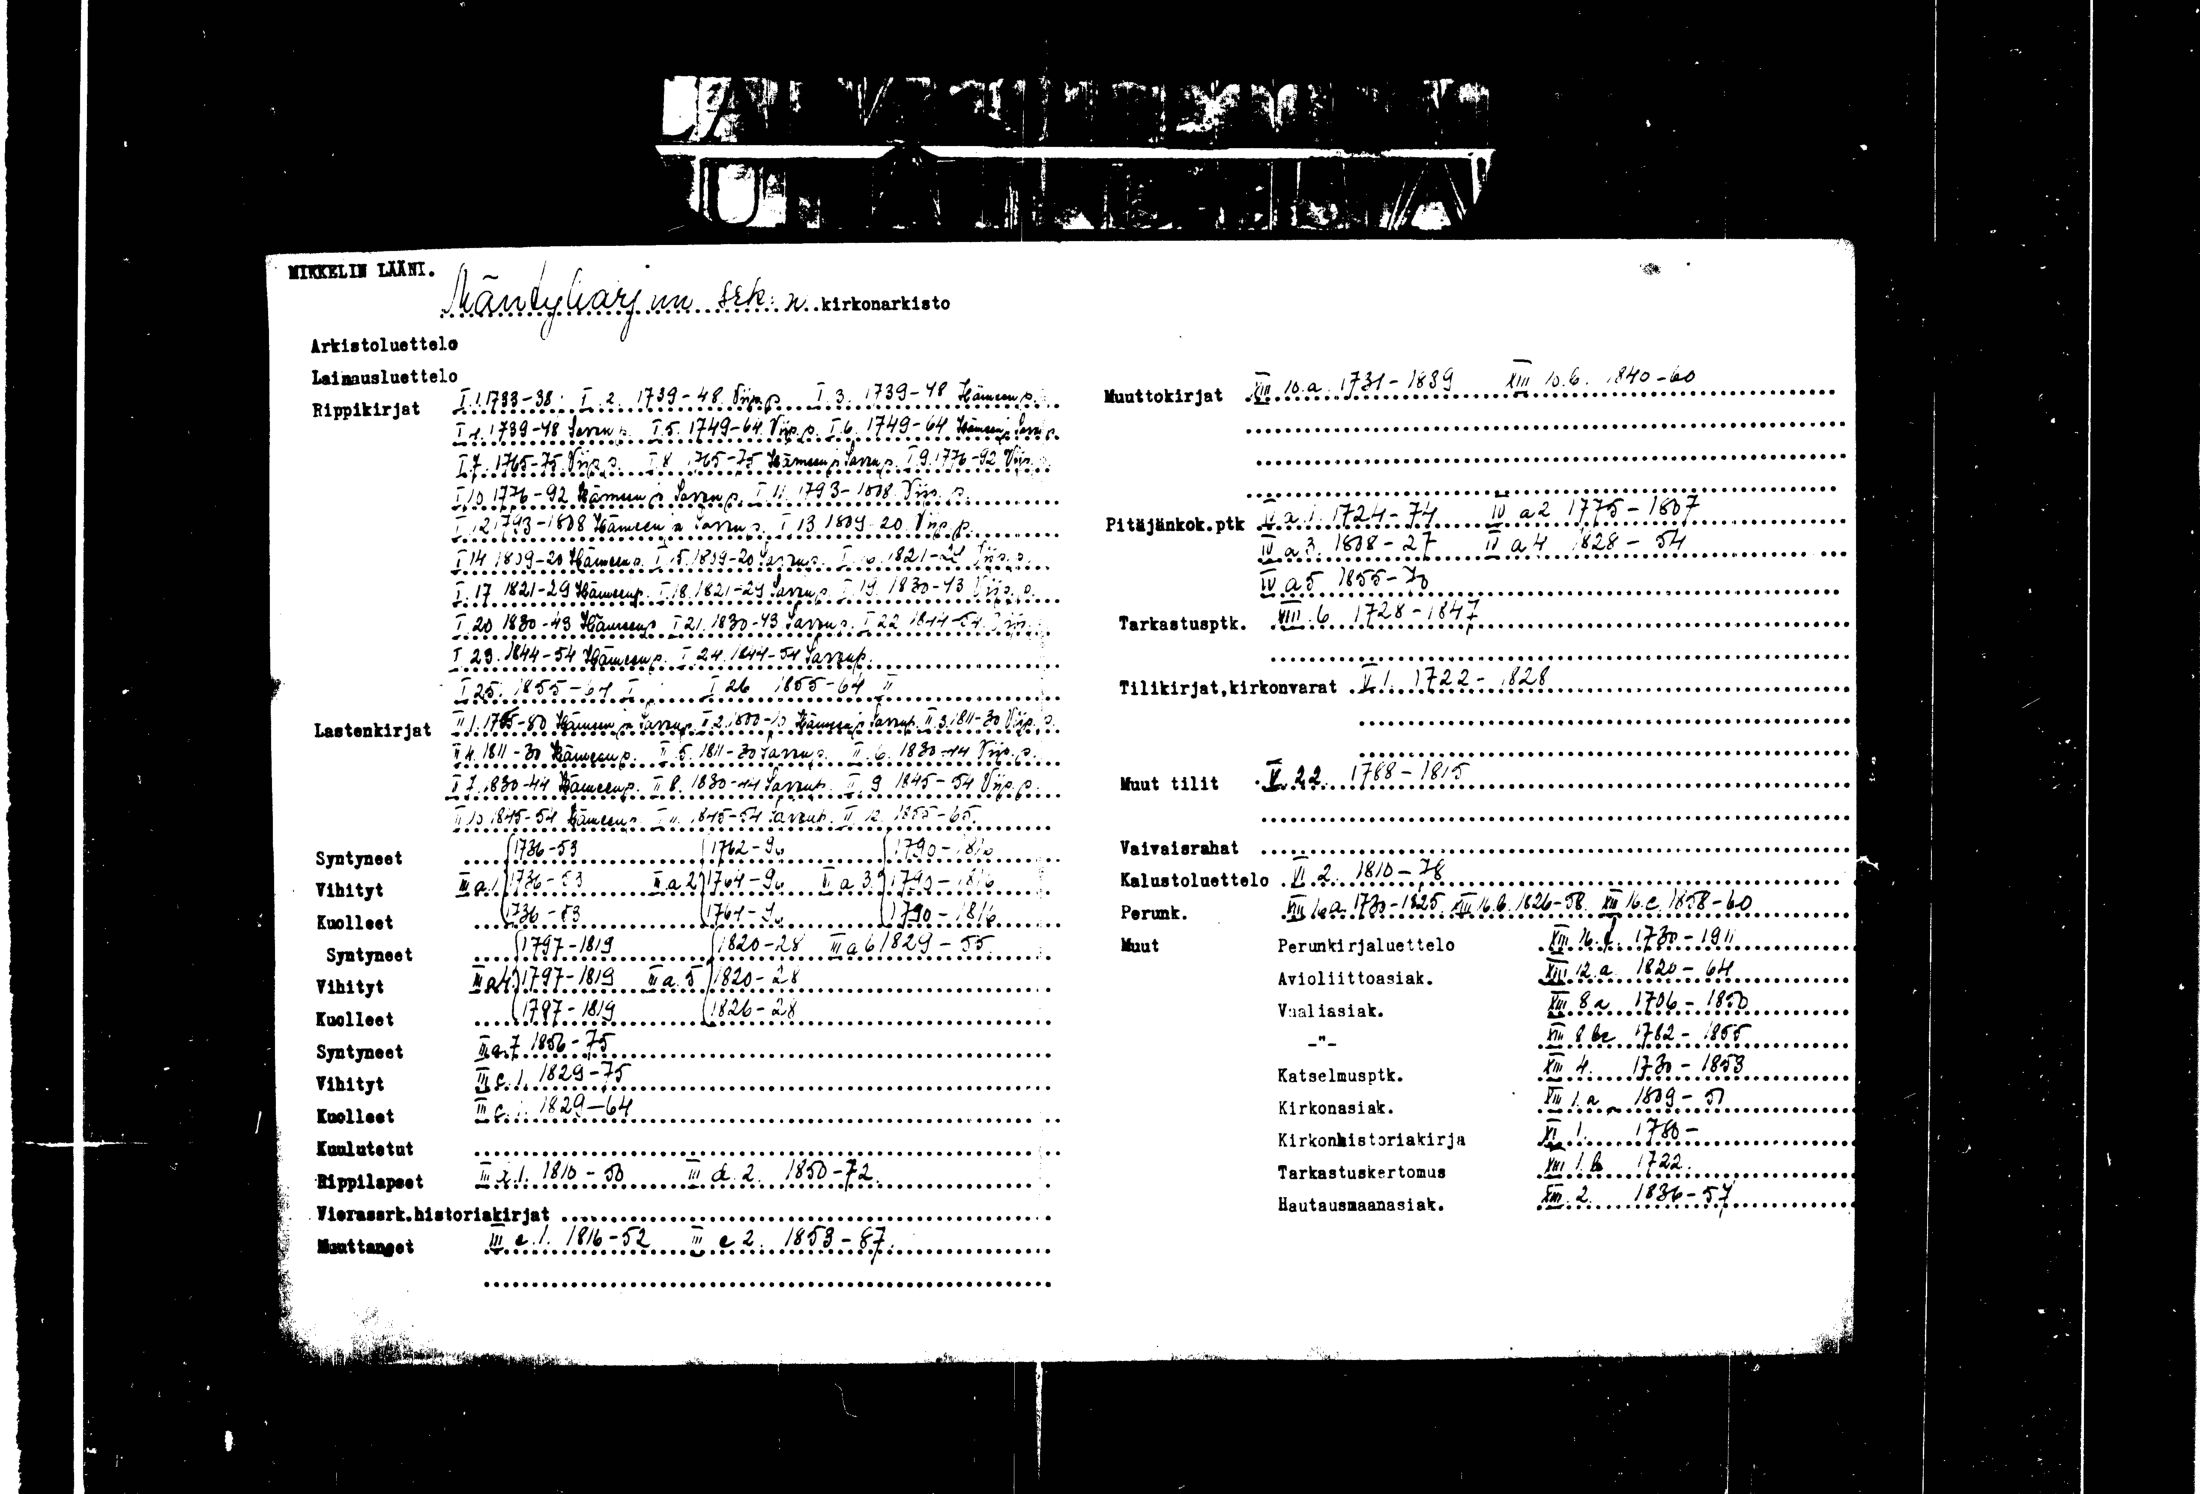 MIKKELIN LÄÄNI.
Mäntyharjun srk:n kirkonarkisto
Arkistoluettelo
Lainausluettelo
Rippikirjat I.1.1733-38. I.2. 1739-48 Viip.p. I.3. 1739-48 Hämeen p.
I.4.1739-48 Savon p. I.5.1749-64 Viip.p. I.6. 1749-64 Hämeen ja Savon p.
I.7. 1765-75 Viip.p. I.8. 1765-75 Hämeen ja Savon p. I.9.1776-92 Viip. p.
I.10 1776-92 Hämeen ja Savon p. I.11. 1793-1808 Viip. p.
I.12 1793-1808 Hämeen ja Savon p. I 13 1809-20. Viip.p.
I 14 1809-20 Hämeen p. I.15.1809-20 Savon p. I. 16. 1821-29 Viip.p.
I. 17 1821-29 Hämeen p. I.18.1821-29 Savon p. I.19. 1830-43 Viip.p.
I.20 1830-43 Hämeen p I 21. 1830-43 Savon p. I 22 1844-54. Viip.
I 23. 1844-54 Hämeen p. I 24. 1844-54 Savon p.
I 25. 1855-64 I I 26 1855-64 II
Lastenkirjat II 1. 1765-80 Hämeen ja Savon p. II 2. 1800-10 Hämeen ja Savon p. II 3. 1811-30 Viip.p.
II 4. 1811-30 Hämeen p. II 5. 1811-30 Savon p. II. 6. 1830-44 Viip. p.
II 7. 1830-44 Hämeen p. II 8. 1830-44 Savon p. II. 9 1845-54 Viip.p.
II 10 1845-54 Hämeen p. II 11. 1845-54 Savon p. II 12. 1855-65.
Syntyneet 1736-53 1762-90 1790-1816
Vihityt III a.1. 1736-53 III a.2. 1764-90 III a 3. 1790-1816
Kuolleet 1736-53 1764-90 1790-1816
Syntyneet 1797-1819 1820-28 III a 6 1829-55.
Vihityt III a 4. 1797-1819 III a. 5 1820-28
Kuolleet 1797-1819 1826-28
Syntyneet III a.7. 1856-75
Vihityt III c. 1. 1829-75
Kuolleet III c. 1. 1829-64
Kuulutetut
Rippilapset III d.1. 1810-50 III d. 2. 1850-72.
Vierassrk.historiakirjat
Muuttaneet III e. 1. 1816-52 III e 2. 1853-87.
Muuttokirjat XIII 10.a. 1731-1839 XIII 10.b. 1840-60
Pitäjänkok.ptk IV a.1. 1724-74 IV a 2 1775-1807
IV a 3. 1808-27 IV a 4 1828-54
IV a 5 1855-70
Tarkastusptk. VIII. 6 1728-1847
Tilikirjat,kirkonvarat V. 1. 1722-1828
Muut tilit V. 22. 1788-1815
Vaivaisrahat
Kalustoluettelo VI 2. 1810-78
Perunk. XIII 16 a. 1730-1825. XIII 16.b. 1826-58. XIII 16.c. 1858-60
Muut Perunkirjaluettelo XIII 16. f. 1730-1911
Avioliittoasiak. XIII 12.a. 1820-64
Vaaliasiak. XIII 8 a 1706-1850
-"- XIII 8 bc 1782-1855
Katselmusptk. XIII 4. 1730-1853
Kirkonasiak. XIII 1. a 1809-51
Kirkonhistoriakirja XI 1. 1780-
Tarkastuskertomus XIII 1. b 1722.
Hautausmaanasiak. XIII. 2. 1836-57